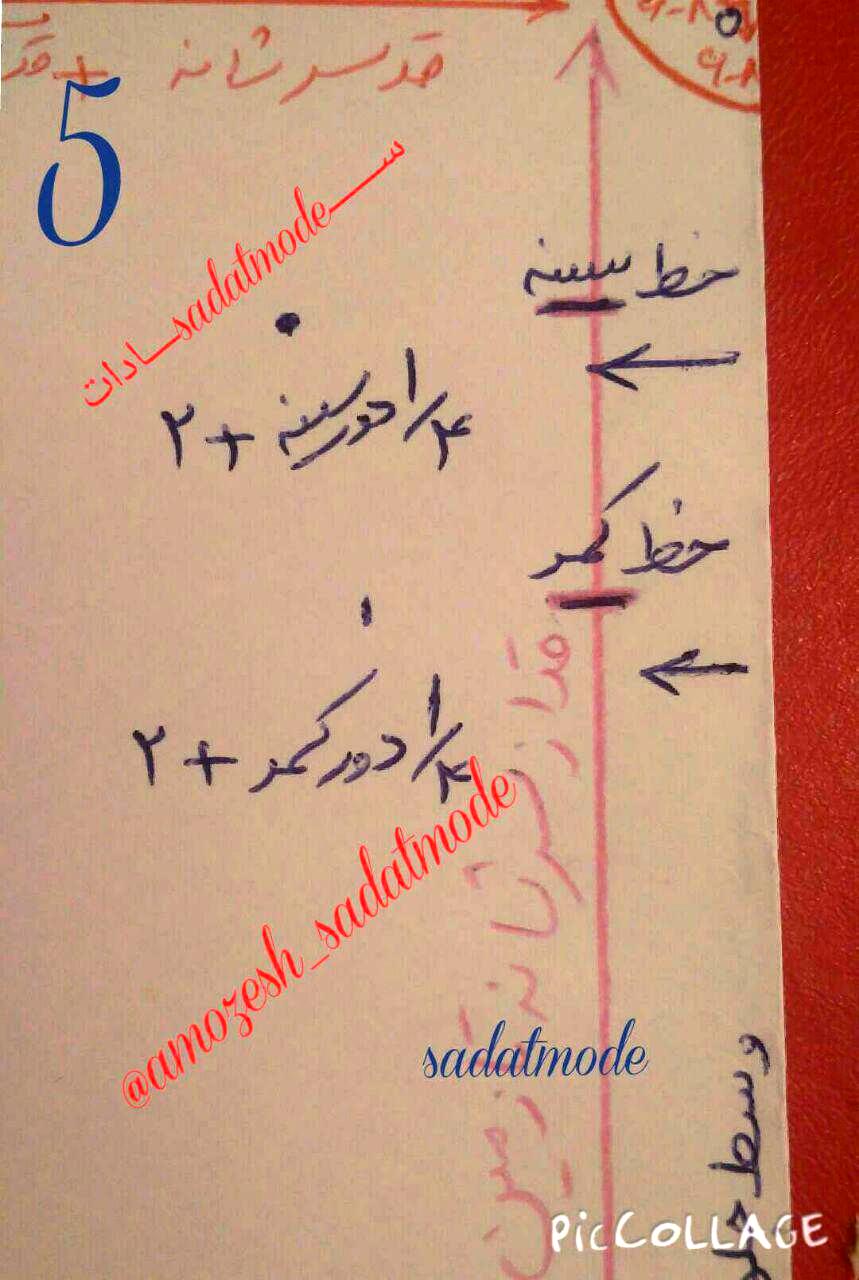 قد سر شانه +
5
ســادات sadatmode
خط سینه
۱/۴ دور سینه + ۲
خط کمر
۱/۴ دور کمر + ۲
قد از سر شانه تا زمین
@amozesh_sadatmode
sadatmode
وسط
PICCOLLAGE